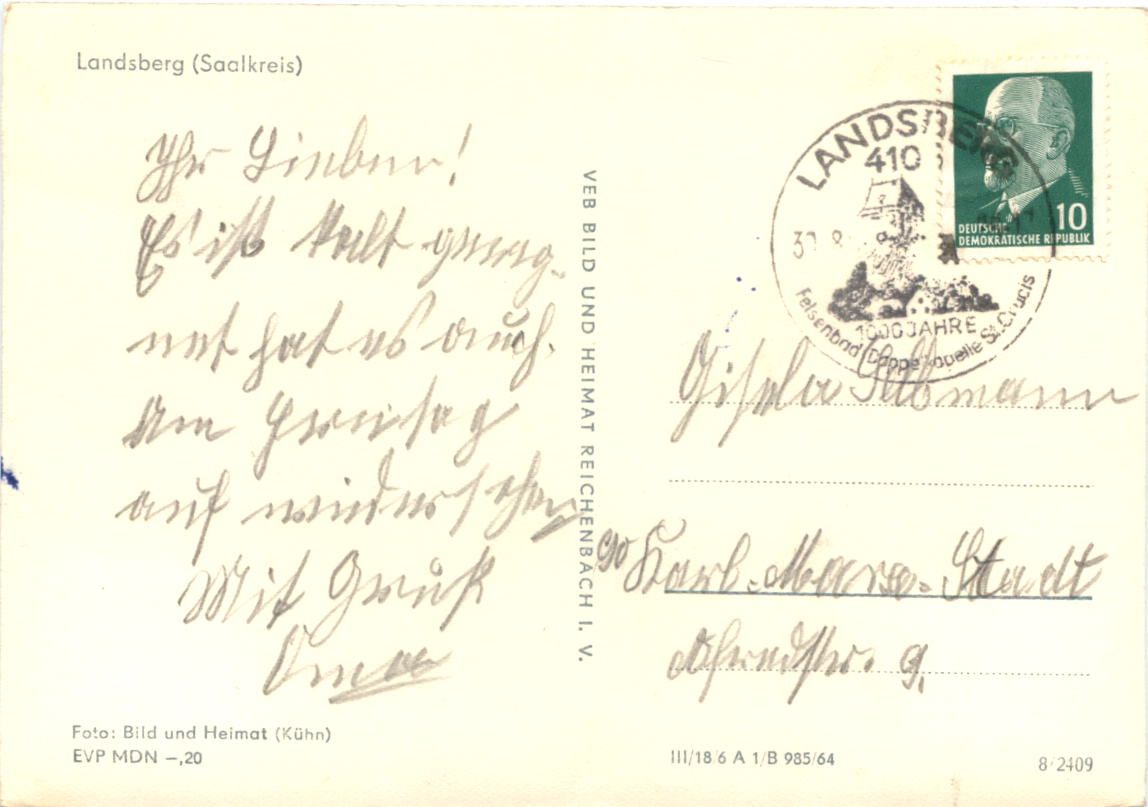 Landsberg (Saalkreis)
Ihr Lieben!
Es ist kalt gereg-
net hat es auch.
Am Freitag
auf wiedersehen
Mit Gruß
Oma
Foto: Bild und Heimat (Kühn)
EVP MDN –,20
VEB BILD UND HEIMAT REICHENBACH I. V.
LANDSBERG
410
1000 JAHRE
Felsenbad Doppelkapelle St. Crucis
DEUTSCHE
DEMOKRATISCHE REPUBLIK
10
Gisela
90 Karl-Marx-Stadt
9.
III/18/6 A 1/B 985/64
8/2409